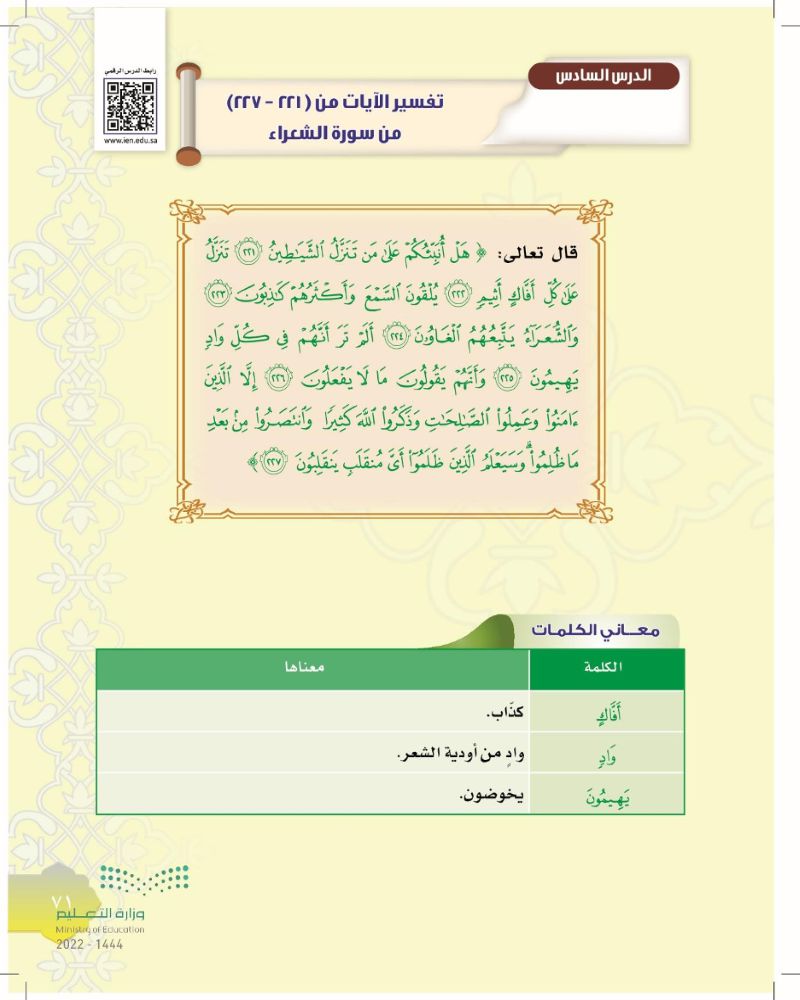 رابط الدرس الرقمي
www.ien.edu.sa
الدرس السادس
تفسير الآيات من (٢٢١ - ٢٢٧)
من سورة الشعراء
قال تعالى: ﴿ هَلْ أُنَبِّئُكُمْ عَلَىٰ مَن تَنَزَّلُ الشَّيَاطِينُ ٢٢١ تَنَزَّلُ
عَلَىٰ كُلِّ أَفَّاكٍ أَثِيمٍ ٢٢٢ يُلْقُونَ السَّمْعَ وَأَكْثَرُهُمْ كَاذِبُونَ ٢٢٣
وَالشُّعَرَاءُ يَتَّبِعُهُمُ الْغَاوُونَ ٢٢٤ أَلَمْ تَرَ أَنَّهُمْ فِي كُلِّ وَادٍ
يَهِيمُونَ ٢٢٥ وَأَنَّهُمْ يَقُولُونَ مَا لَا يَفْعَلُونَ ٢٢٦ إِلَّا الَّذِينَ
ءَامَنُوا وَعَمِلُوا الصَّالِحَاتِ وَذَكَرُوا اللَّهَ كَثِيرًا وَانتَصَرُوا مِن بَعْدِ
مَا ظُلِمُوا ۗ وَسَيَعْلَمُ الَّذِينَ ظَلَمُوا أَيَّ مُنقَلَبٍ يَنقَلِبُونَ ٢٢٧ ﴾
معــاني الكلمـات
الكلمة معناها
أَفَّاكٍ كذّاب.
وَادٍ وادٍ من أودية الشعر.
يَهِيمُونَ يخوضون.
٧١
وزارة التعـــليم
Ministry of Education
2022 - 1444